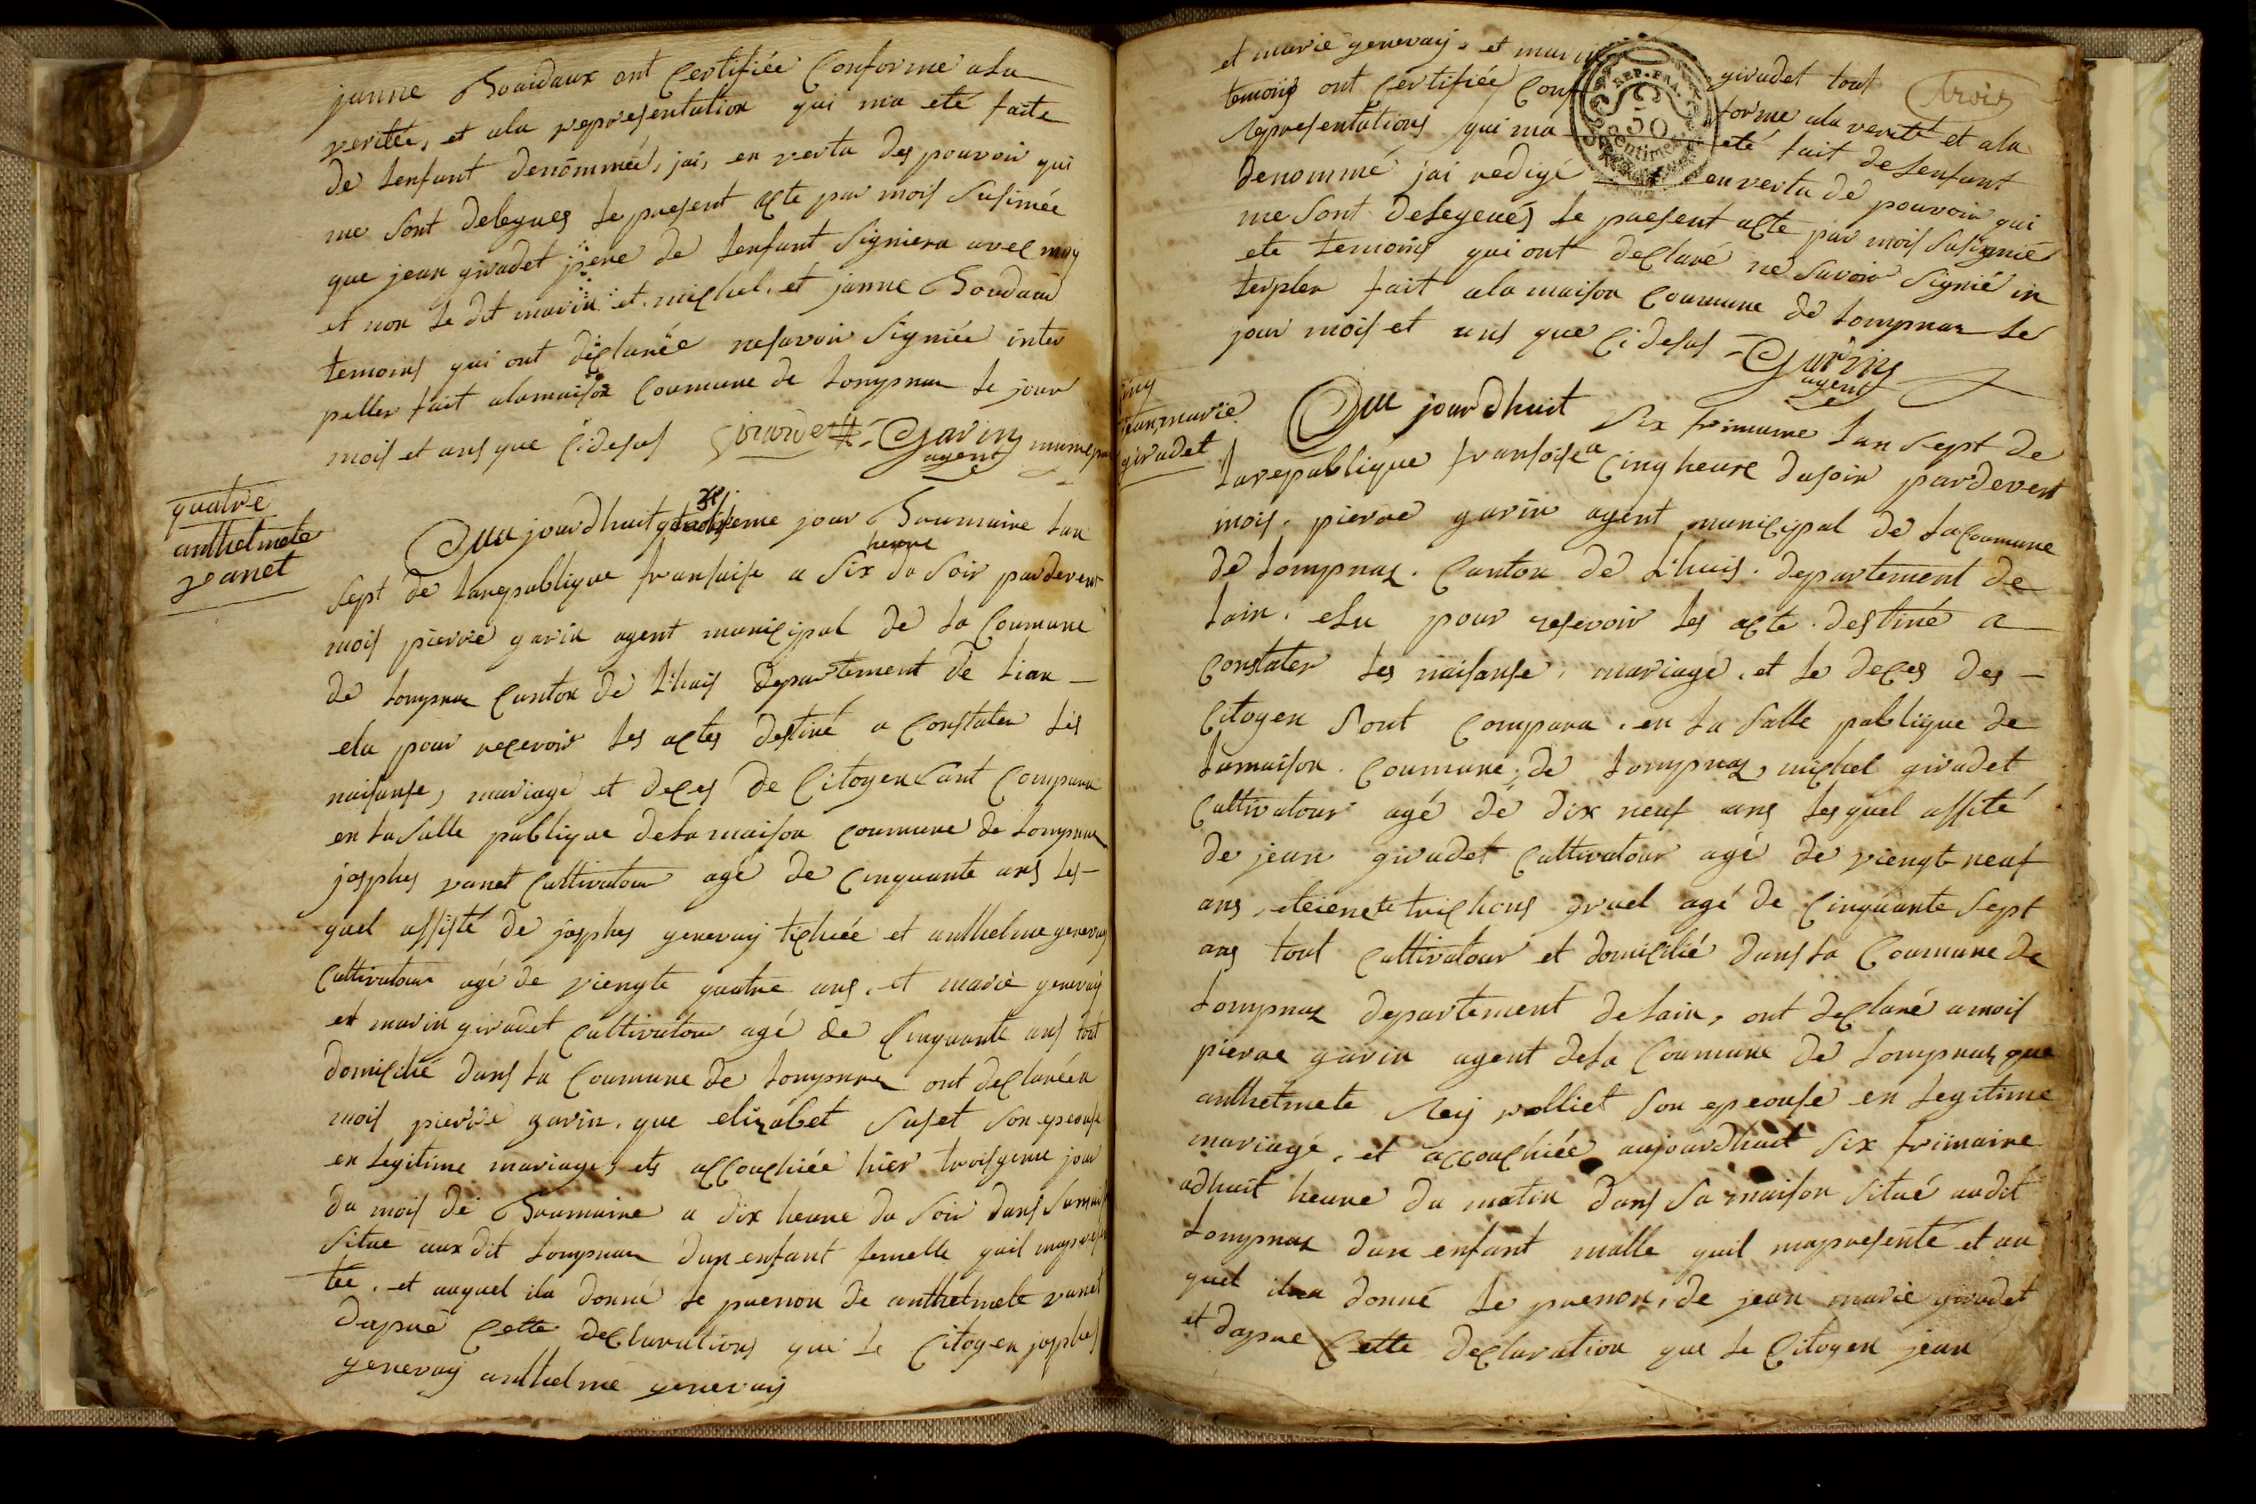 janne Boudaux ont Certifiée Conforme ala
veritée, et ala representation qui ma eté faite
de lenfant denommée, jai, en vertu des pouvoir qui
me sont delegues le present acte par mois susinée
que jean giradet pere de lenfant signiera avec moy
et non le dit marin et michel et janne Boudaux
temoins qui ont declarée nesavoir signiée inter
peller fait alamaison Coumune de lompnaz le jour
mois et ans que Cidesus girardet Garin
agent
quatre
anthelmete
vanet
Au jourdhuit jour Brumaire lan
heure
sept de larepublique fransaise a six du soir pardevent
mois pierre garin agent municipal de la Coumune
de lompnaz Canton de Lhuis Departement de lian
elu pour recevoir les actes destiné a Constater les
naisanse, mariage et deces de Citoyen sont Compara
en la salle publique dela maison coumune de lompnaz
josphes vanet Cultivatour agé de cinquante ans les
quel assisté de josphes genevay et anthelme genevay
Cultivatour agé de viengte quatre ans, et marie genevay
et marin giradet Cultivatour agé de Cinquante ans tout
domicilié dans la Coumune de lompnaz ont declarée a
mois pierre garin, que elizabet suset son epeouse
en legitime mariage, ets accouchiée hier troisyeme jour
du mois de Brumaire a dix heure du soir dans samaison
situe aux dit lompnaz dun enfant femelle quil mapresen
tée, et auquel ila donné le prenon de anthelmete vanet
dapré Cette declarations que le Citoyen josphes
genevay anthelme genevay
et marie genevay, et marin giradet tout
trois
temoins ont Certifiée Conforme ala verité et ala
representations qui ma eté fait de lenfant
denommé jai redigé en vertu dé pouvoir qui
me sont delegeués le present acte par mois susignié
ete temoins qui ont declaré ne savoir signié in
terpler fait ala maison Coumune de lompnaz le
jour mois et ans que Cidesus Garin
agent
REP. FRA.
50
Centimes
cinq
jeanmarie
giradet
Au jourdhuit six frimaire lan sept de
larepublique fransoise a Cinq heure dusoir pardevent
mois, pierre garin agent municipal de la Coumune
de lompnaz, Canton de Lhuis, departement de
lain, elu pour resevoir les acte destiné a
Constater les naisanse, mariage, et le deces des
Citoyen sont Compara, en la salle publique de
lamaison Coumune, de lompnaz, michel giradet
Cultivatour agé dé dix neuf ans lesquel assité
de jean giradet Cultivatour agé de viengt neuf
ans, eteienete gruel agé de Cinquante sept
ans tout Cultivatour et domicilié dans la Coumune de
lompnaz departement delain, ont declaré amois
pierre garin agent dela Coumune de lompnaz que
anthelmete Rey polliet son epeouse en legitime
mariagé, et accouchiée aujourdhuit six frimaire
adhuit heure du matin dans sa maison situé audit
lompnaz dun enfant malle quil mapresenté et au
quel ila donné le prenon, de jean marie giradet
et dapre Cette declaration que le Citoyen jean